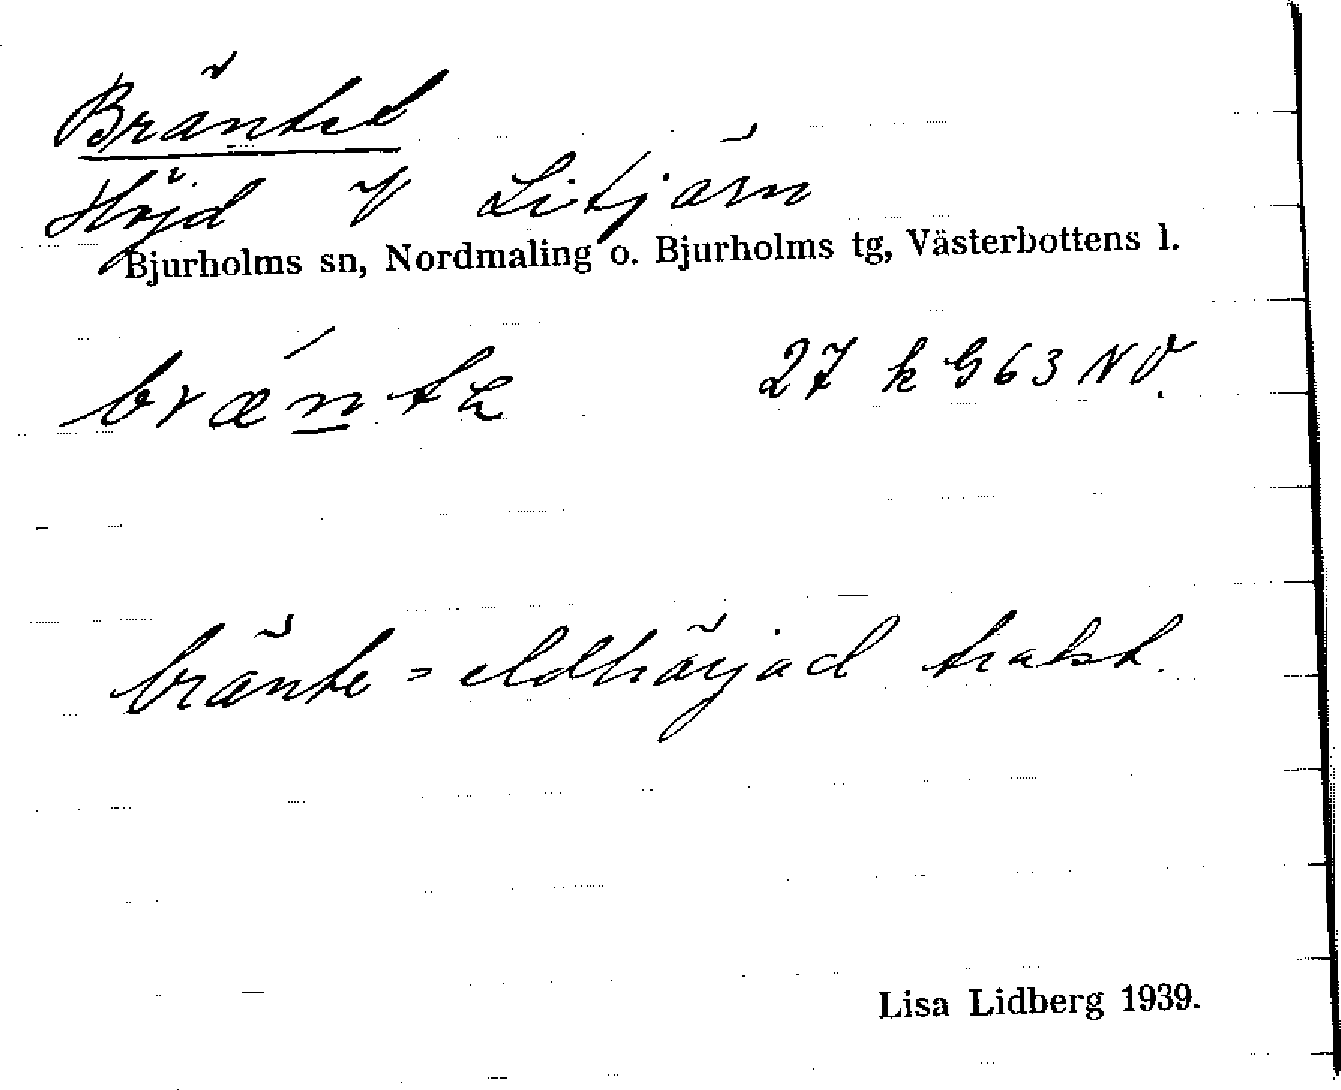 Bräntet
Höjd V Litjärn
Bjurholms sn, Nordmaling o. Bjurholms tg, Västerbottens l.
brǽntɩ 27 k G 63 NV.
bränte = eldhärjad trakt.
Lisa Lidberg 1939.